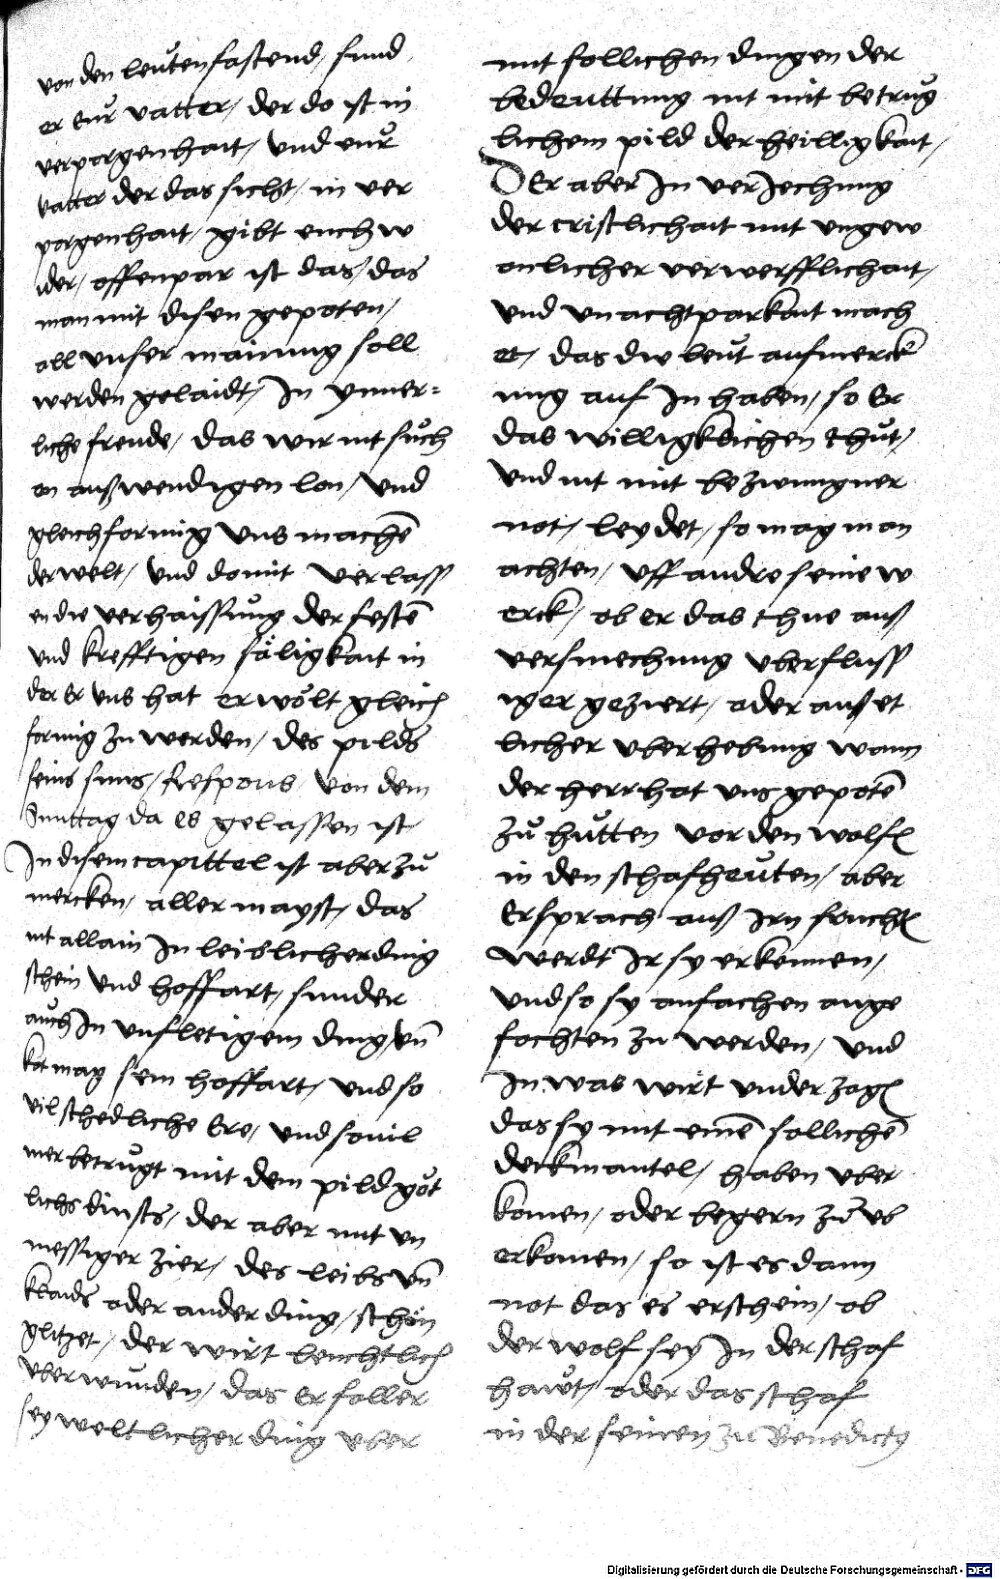 von den leuten fastend, sund
er eur vatter, der do ist in
verporgenhait, und eur
vatter der das sicht, in ver
porgenhait, gibt euch w
ider, offenpar ist das, das
man mit disen gepoten,
all unser mainung soll
werden gelaidt, In ynner-
liche freude, das wir nit such
en außwendigen lon, und
gleichformig uns machen
der welt, und domit verlass
en die verhaissung der festen
und krefftigen säligkait in
der Er uns hat erwölt gleich
formig zu werden, des pilds
seins suns, Respons, von dem
Sunttag da es gelassen ist
In disem capittel ist aber zu
mercken, aller mayst, das
nit allain In leiblicher ding
schein und hoffart, sunder
auch In unfletigem ding, un
kot mag sein hoffart, und so
vil schedliche Ere, und so vil
mer betrugt mit dem pild göt
lichs dinsts, der aber mit un
messiger zier, des leibs un
klaids oder ander ding, schön
glitzet, der wirt leuchtlich
uberwunden, das Er soller
sey weltlicher ding uber
mit sollichen dingen der
bedeuttung nit mit betrug
lichem pild der heilligkait,
Der aber In verJechung
der cristlichait mit ungew
onlicher verwerfflichait,
und unachtparkait mach
et, das diw leut aufmerck
ung auf In haben, so Er
das willigklichen thut,
und nit mit bezwungner
not, leydet, so mag man
achten, uff andre seine w
erck, ob er das thue auß
versmechung uberfluss
iger geziert, oder auß et
licher uberhebung wann
der herr hat uns gepoten
zu hutten vor den wolfen
in den schafheuten, aber
Er sprach auß Irn fruchten
werdt Ir sy erkennen,
und so sy anfachen ange
fochten zu werden, und
In was wirt underzogen
das sy mit einem sollichen
deckmantel, haben uber
komen, oder begern zu ub
erkomen, so ist es dann
not das es erschein, ob
der wolf sey In der schaf
haut, oder das schaf
in der seinen zu Benedictg